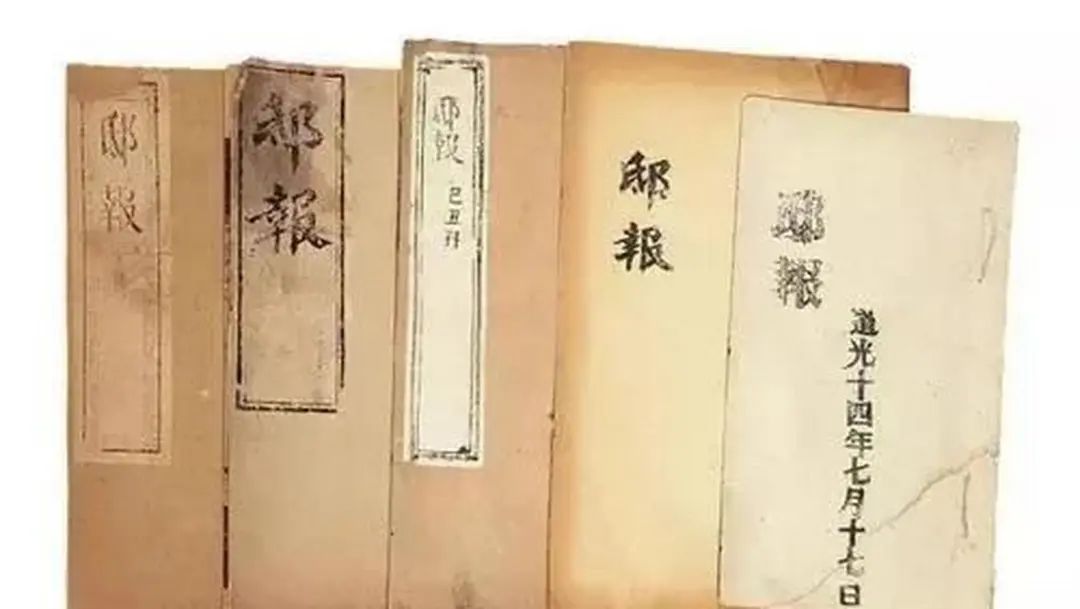 邸報
邸報
邸報
己丑
邸報
邸報
道光十四年七月十七日